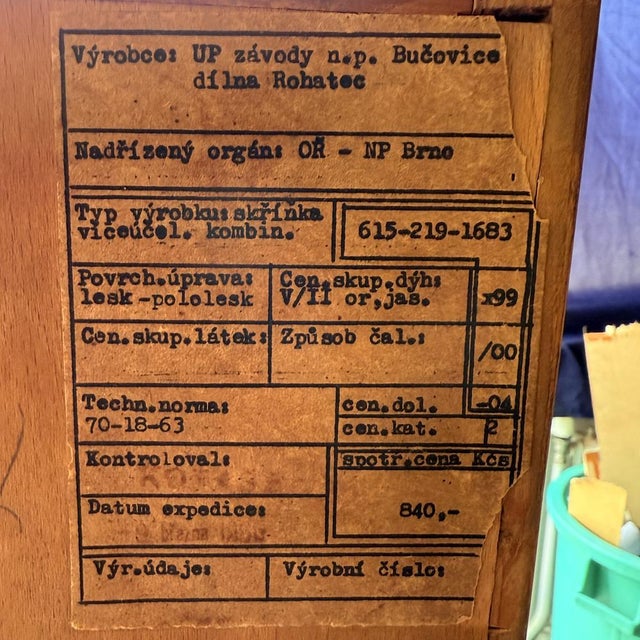 Výrobce: UP závody n.p. Bučovice
dílna Rohatec
Nadřízený orgán: OŘ - NP Brno
Typ výrobku: skříňka
víceúčel. kombin.
615-219-1683
Povrch.úprava:
lesk-pololesk
Cen.skup.dýh:
V/II or,jas.
x99
Cen.skup.látek:
Způsob čal.:
/00
Techn.norma:
70-18-63
cen.dol.
-04
cen.kat.
2
Kontroloval:
spotř.cena Kčs
Datum expedice:
840,-
Výr.údaje:
Výrobní číslo: